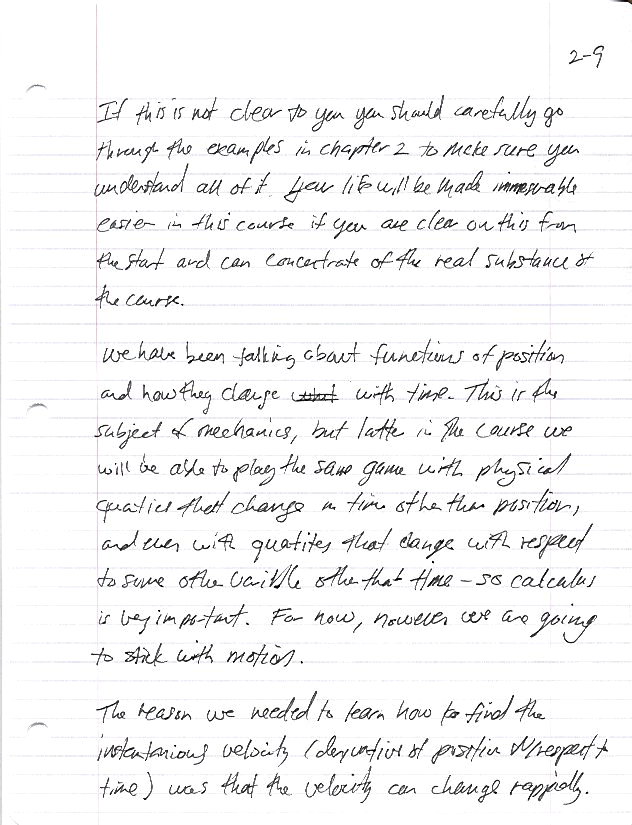 2-9
If this is not clear to you you should carefully go
through the examples in chapter 2 to make sure you
understand all of it. Your life will be made immesurable
easier in this course if you are clear on this from
the start and can concentrate of the real substance of
the course.
We have been talking about functions of position
and how they change with time. This is the
subject of mechanics, but latter in the course we
will be able to play the same game with physical
quatics that change in time other than position,
and even with quatites that change with respect
to some other varible other that time - so calculus
is very important. For now, however we are going
to stick with motion.
The reason we needed to learn how to find the
instantanious velocity (derivative of position w/respect to
time) was that the velocity can change rappidly.